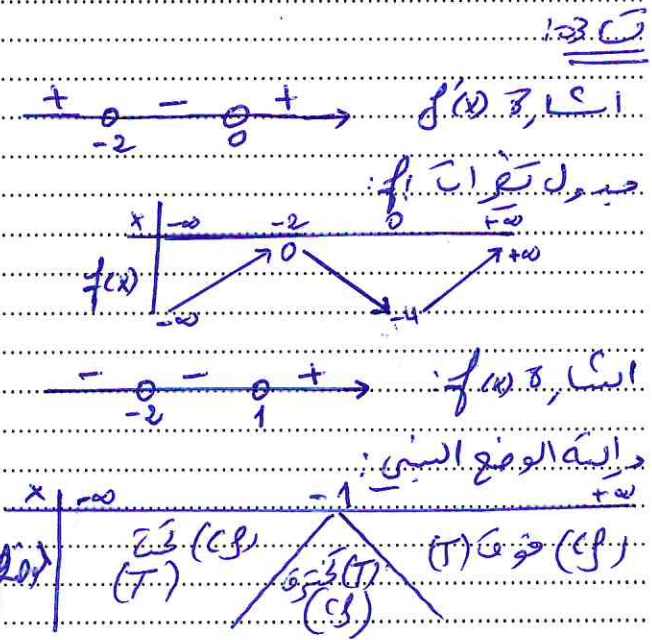 ت 3:
اشارة f'(x)
+ - +
-2 0
جدول تغيرات f:
x -∞ -2 0 +∞
f(x) -∞ 0 -4 +∞
اشارة f(x):
- - +
-2 1
دراسة الوضع النسبي:
x -∞ -1 +∞
(Cf) تحت (T) (T) تخترق (Cf) (Cf) فوق (T)